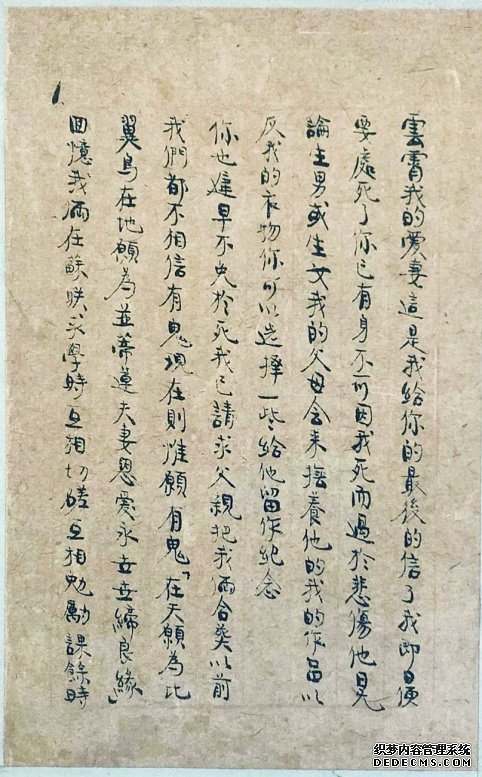 雲霄我的愛妻這是我給你的最後的信了我即日便
要處死了你已有身不可因我死而過於悲傷他日無
論生男或生女我的父母会来撫養他的我的作品以
及我的衣物你可以选擇一些給他留作紀念
你也遲早不免於死我已請求父親把我倆合葬以前
我們都不相信有鬼現在則惟願有鬼「在天願為比
翼鳥在地願為並蒂蓮夫妻恩爱永世世締良緣」
回憶我倆在蘇联求學時互相切磋互相勉勵課餘時
织梦内容管理系统
DEDECMS.COM